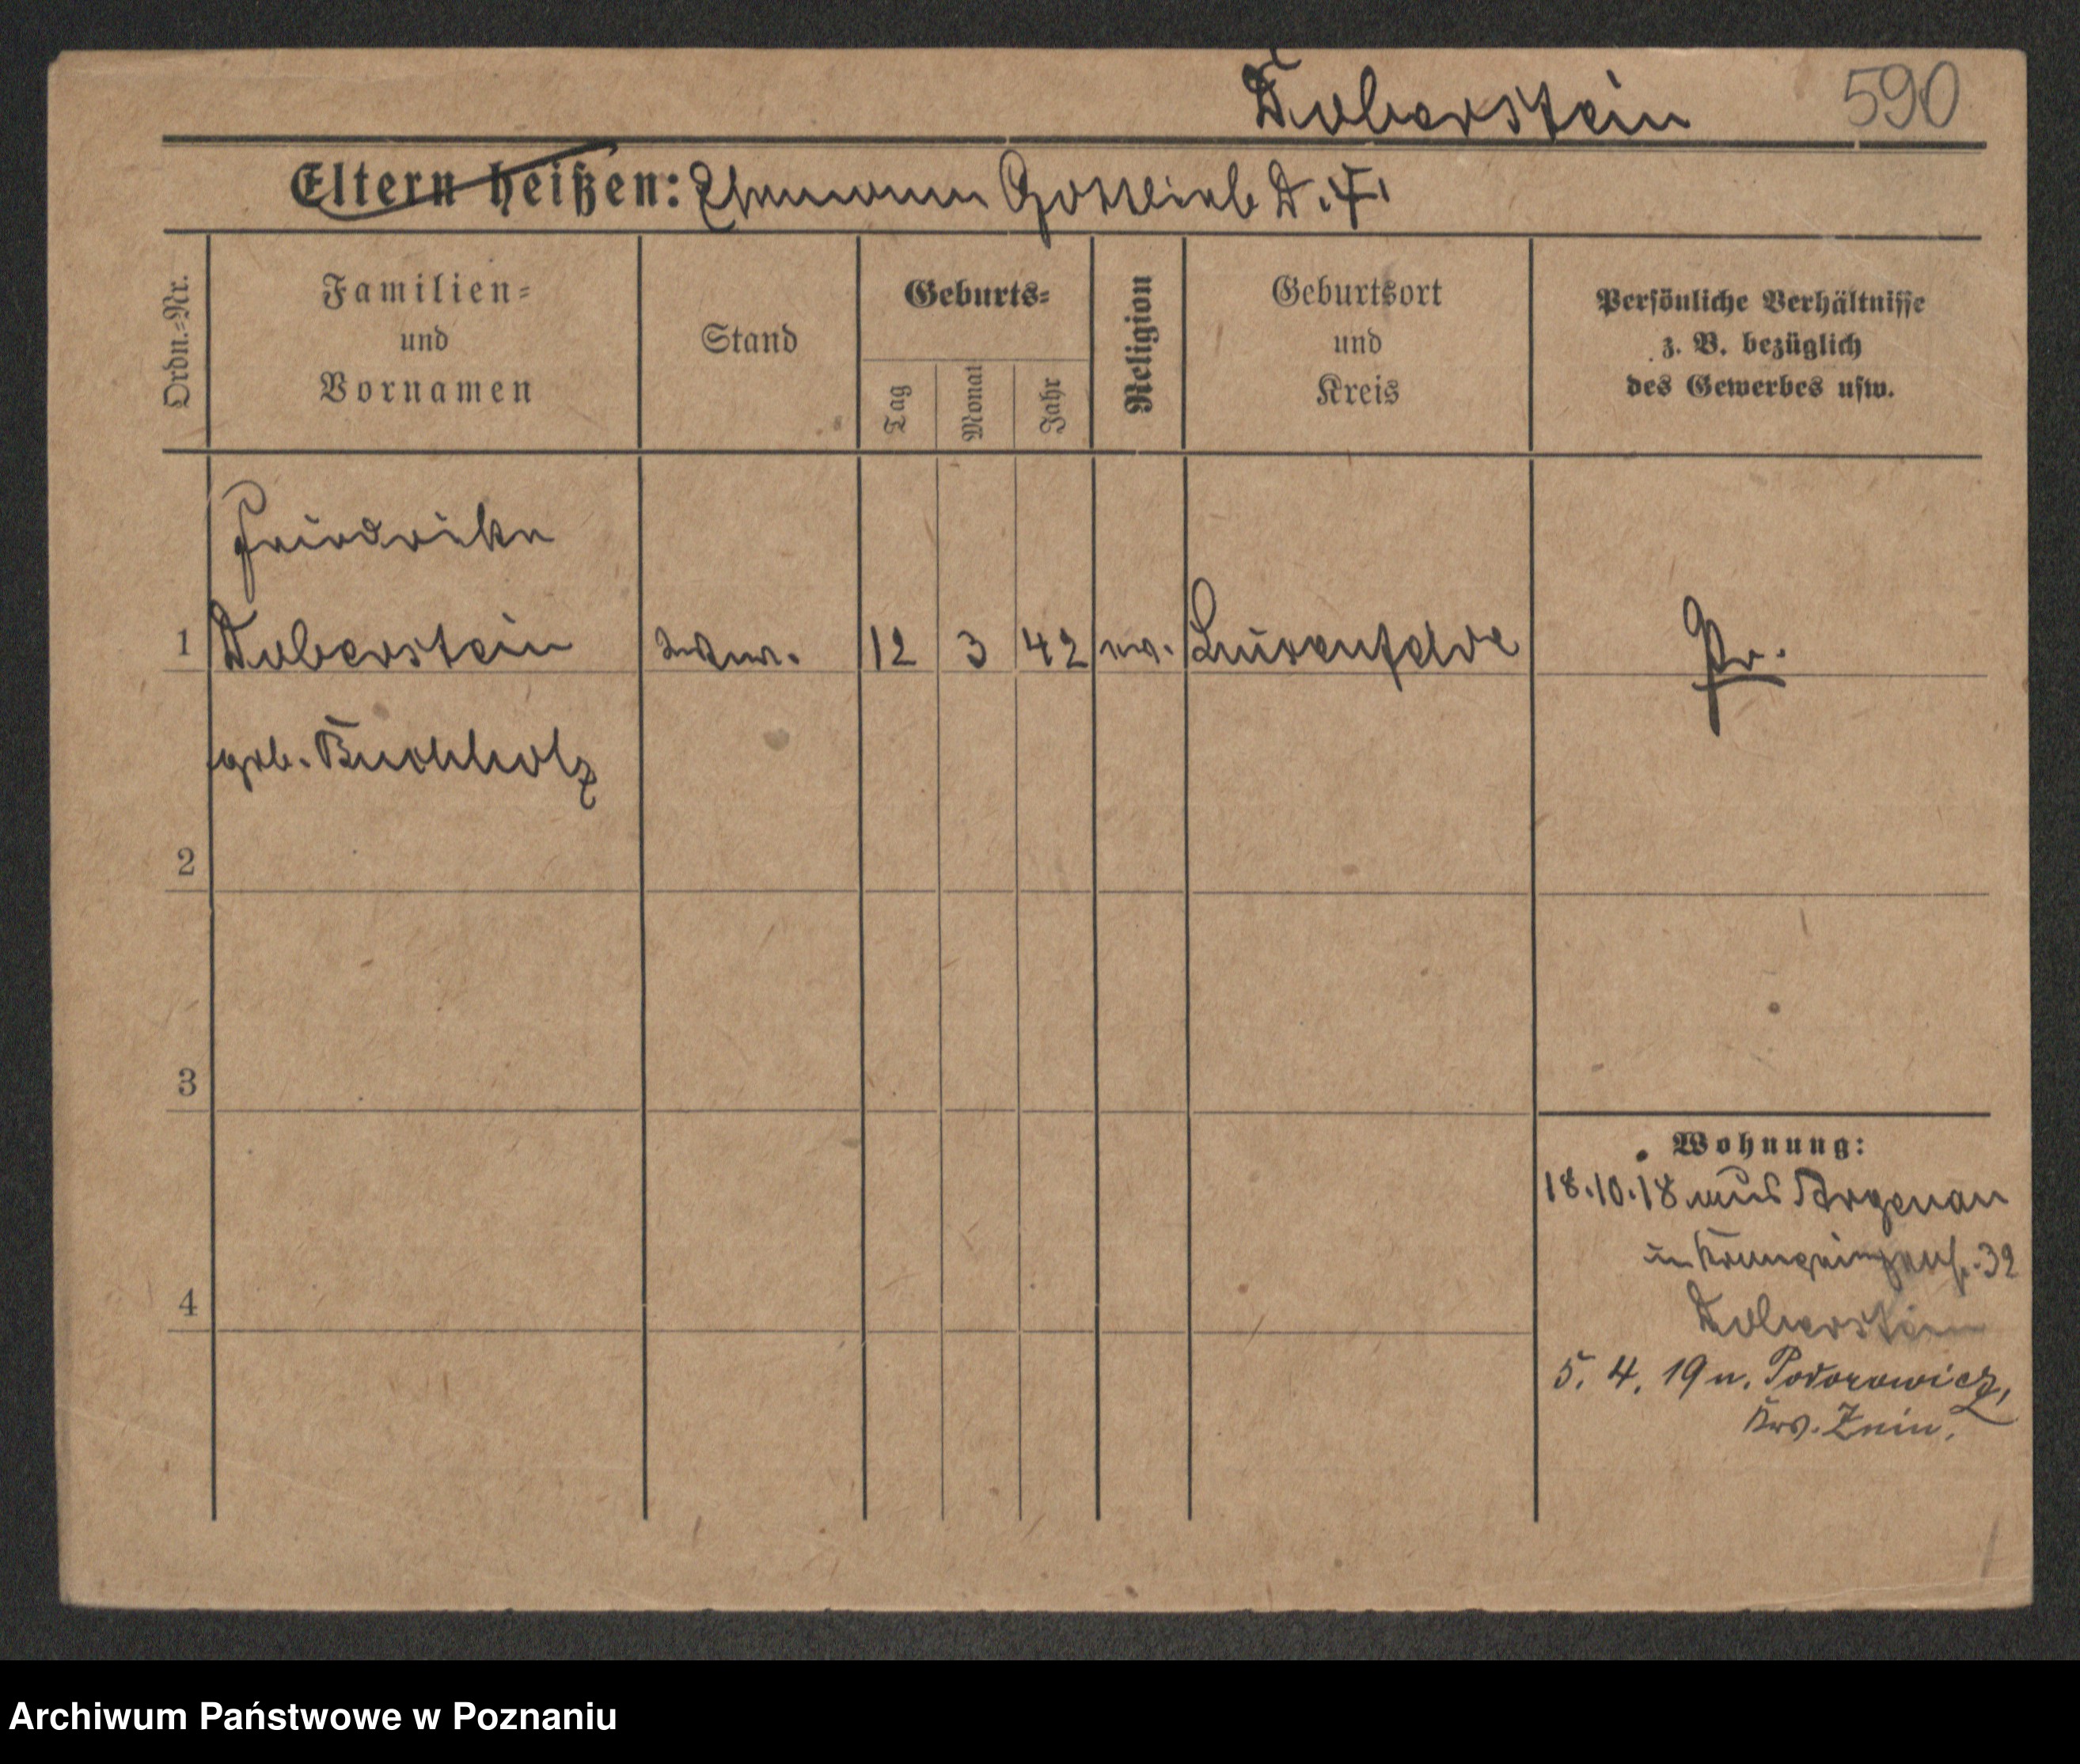 Duberstein 590
Eltern heißen: Ehemann Gottlieb D. †
Ordn.=Nr.
Familien=
und
Vornamen
Stand
Geburts=
Tag
Monat
Jahr
Religion
Geburtsort
und
Kreis
Persönliche Verhältnisse
z. B. bezüglich
des Gewerbes usw.
Friederike
1 Duberstein Witwe. 12 3 42 ev. Luisenfelde Pr.
geb. Buchholz
2
3
4
Wohnung:
18.10.18 aus Argenau
in 32
Duberstein
5. 4. 19 n. Podorowicz,
Krs. Znin.
Archiwum Państwowe w Poznaniu